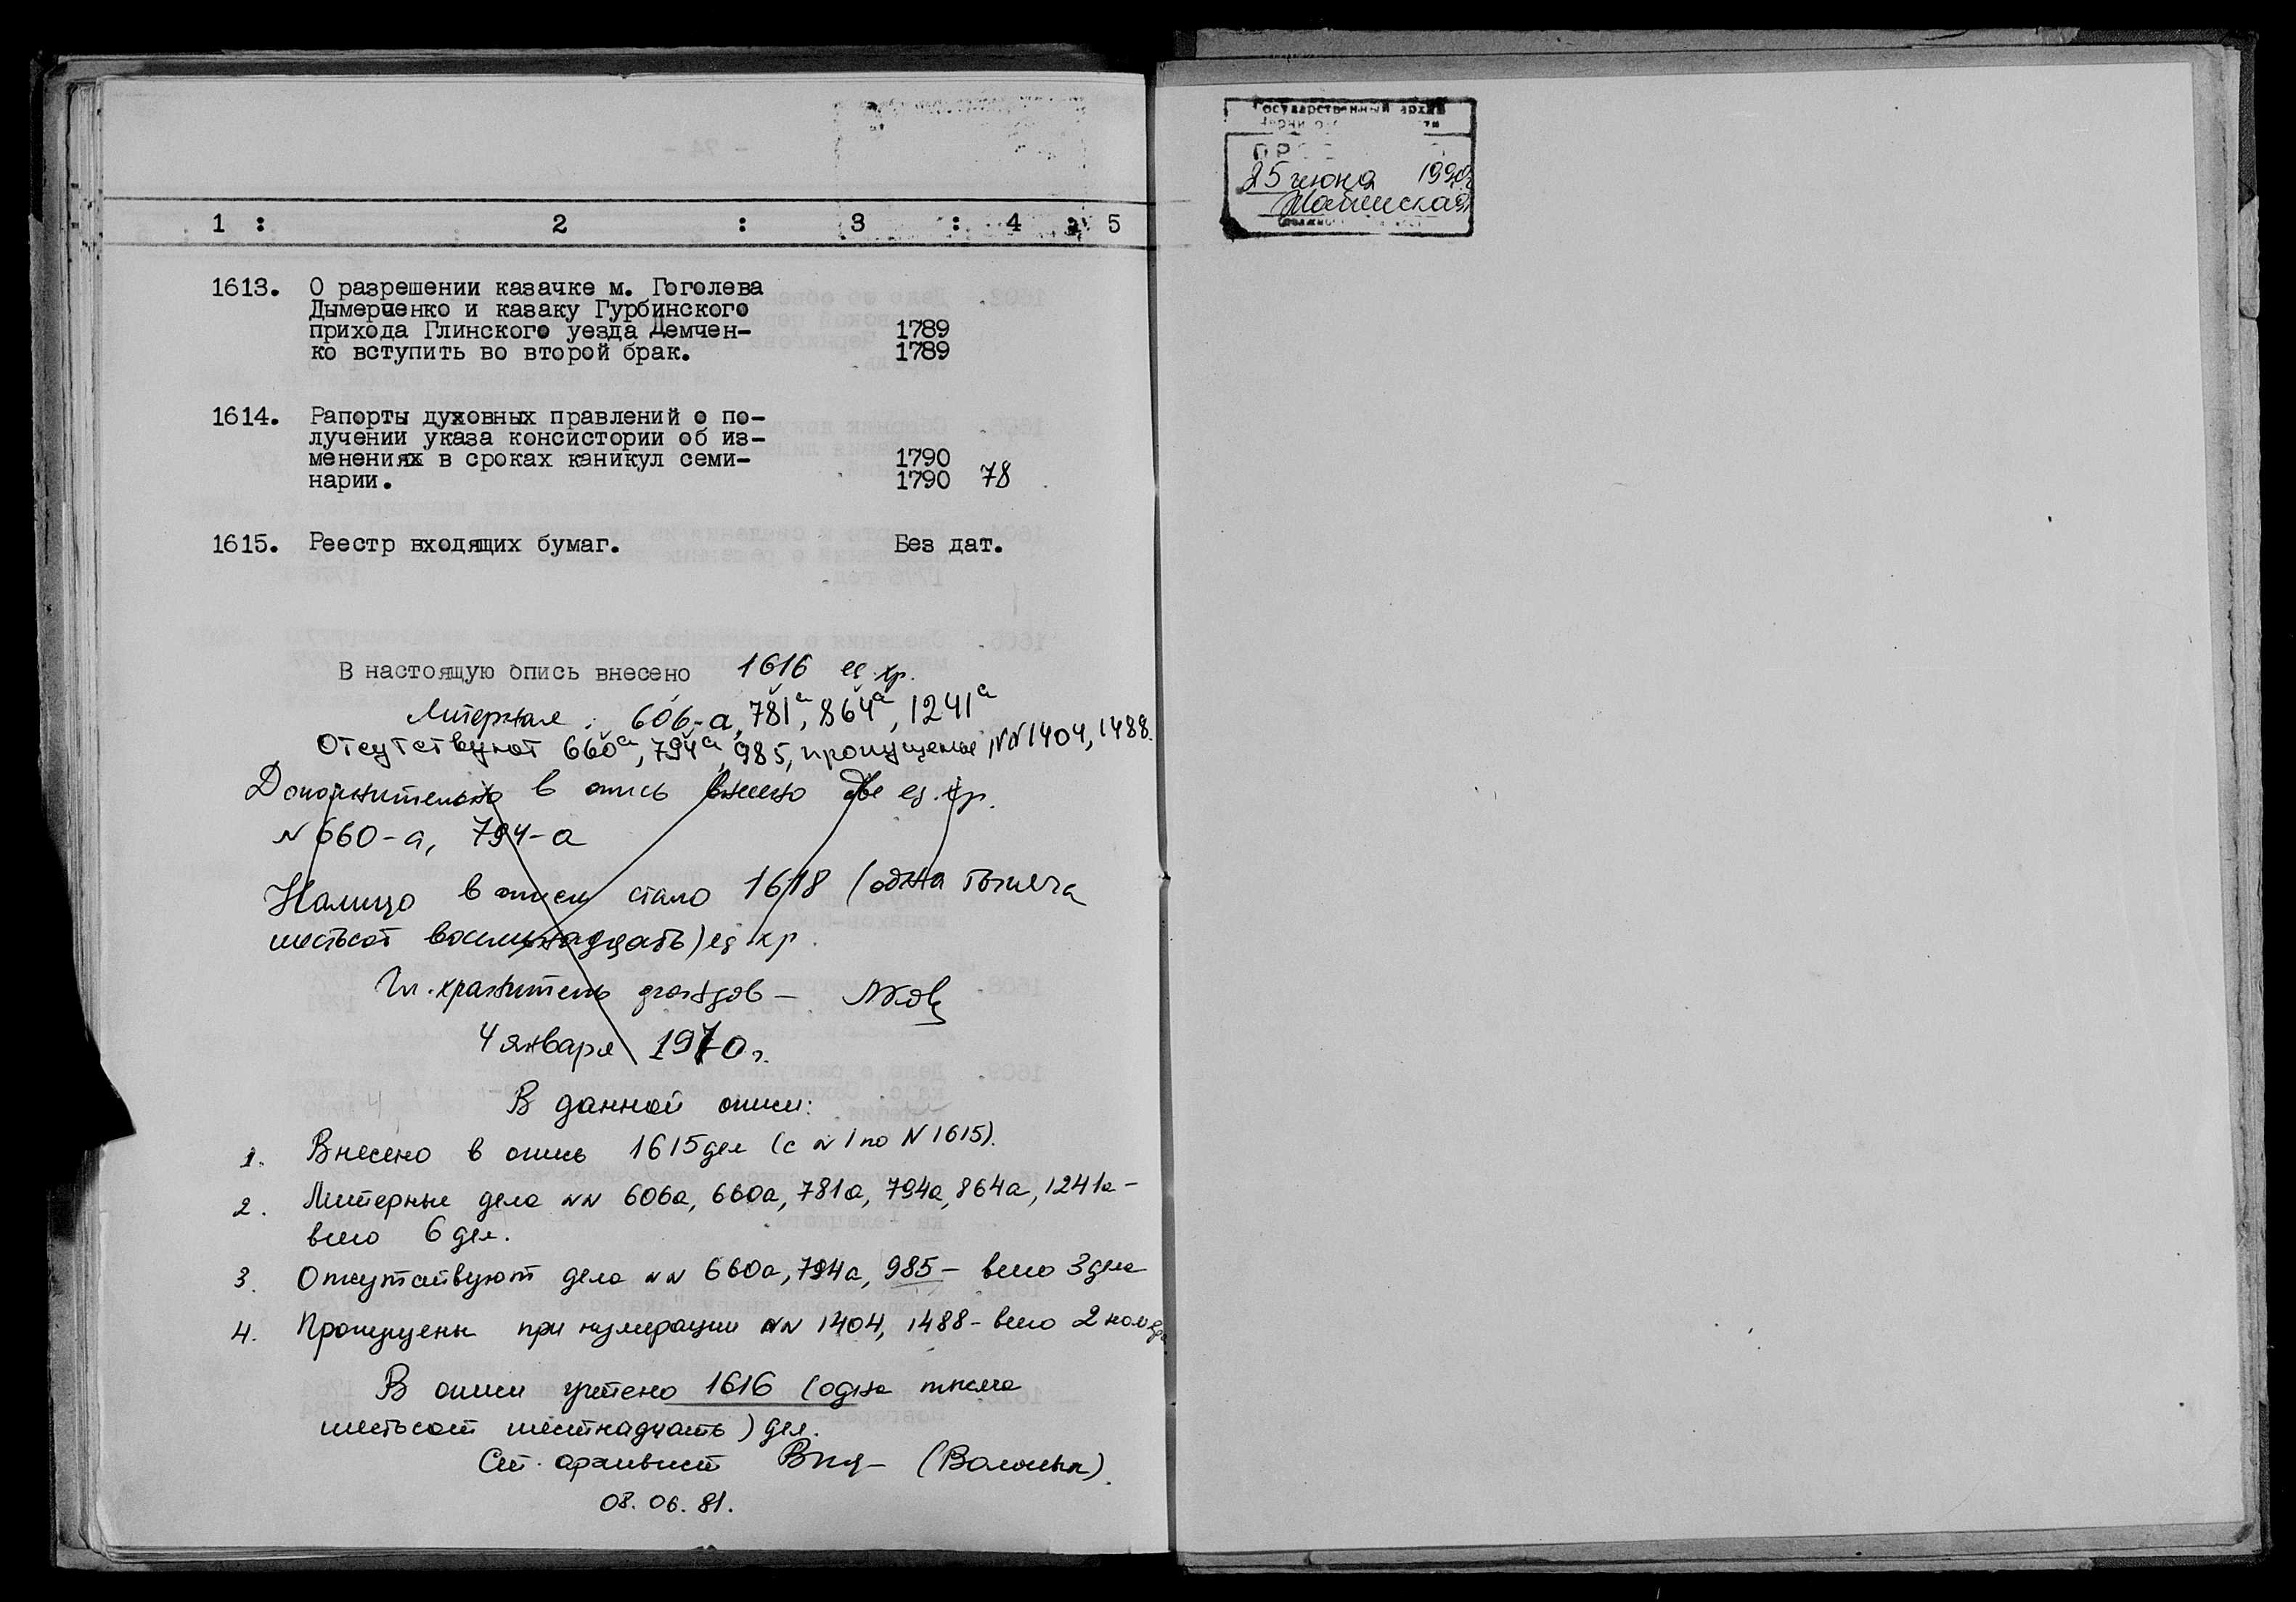 1 : 2 : 3 : 4 : 5
1613. О разрешении казачке м. Гоголева
Дымерченко и казаку Гурбинского
прихода Глинского уезда Демчен- 1789
ко вступить во второй брак. 1789
1614. Рапорты духовных правлений о по-
лучении указа консистории об из-
менениях в сроках каникул семи- 1790
нарии. 1790 78
1615. Реестр входящих бумаг. Без дат.
В настоящую опись внесено 1616 ед. хр.
Литерные: 606-а, 781а, 864а, 1241а
Отсутствуют 660а, 794а, 985, пропущены NN 1404, 1488.
Дополнительно в опись внесено две ед. хр.
N 660-а, 794-а
Налицо в описи стало 1618 (одна тысяча
шестьсот восемнадцать) ед. хр.
Гл. хранитель фондов –
4 января 1970 г.
В данной описи:
1. Внесено в опись 1615 дел (с N 1 по N 1615).
2. Литерные дела NN 606а, 660а, 781а, 794а, 864а, 1241а –
всего 6 дел.
3. Отсутствуют дела NN 660а, 794а, 985 – всего 3 дела
4. Пропущены при нумерации NN 1404, 1488 – всего 2 номера
В описи учтено 1616 (одна тысяча
шестьсот шестнадцать) дел.
Ст. архивист (Волошин)
08.06.81.
Государственный архив
25 июня 1990